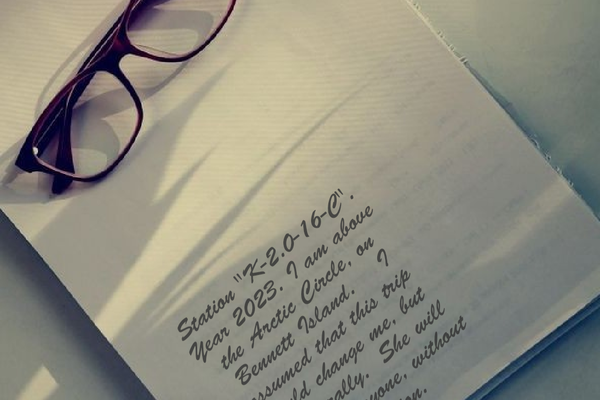 Station "K-2.0-16-C".
Year 2023. I am above
the Arctic Circle, on
Bennett Island. I
assumed that this trip
change me, but
She will
without